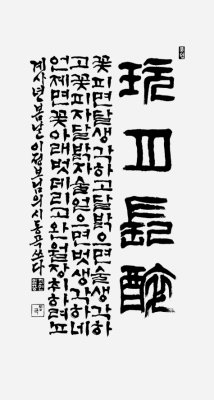 玩月長醉
꽃피면달생각하고달밝으면술생각하
고꽃피자달밝자술얻으면벗생각하네
언제면꽃아래벗데리고완월장취하려뇨
계사년봄날이정보님의시동곡쓰다